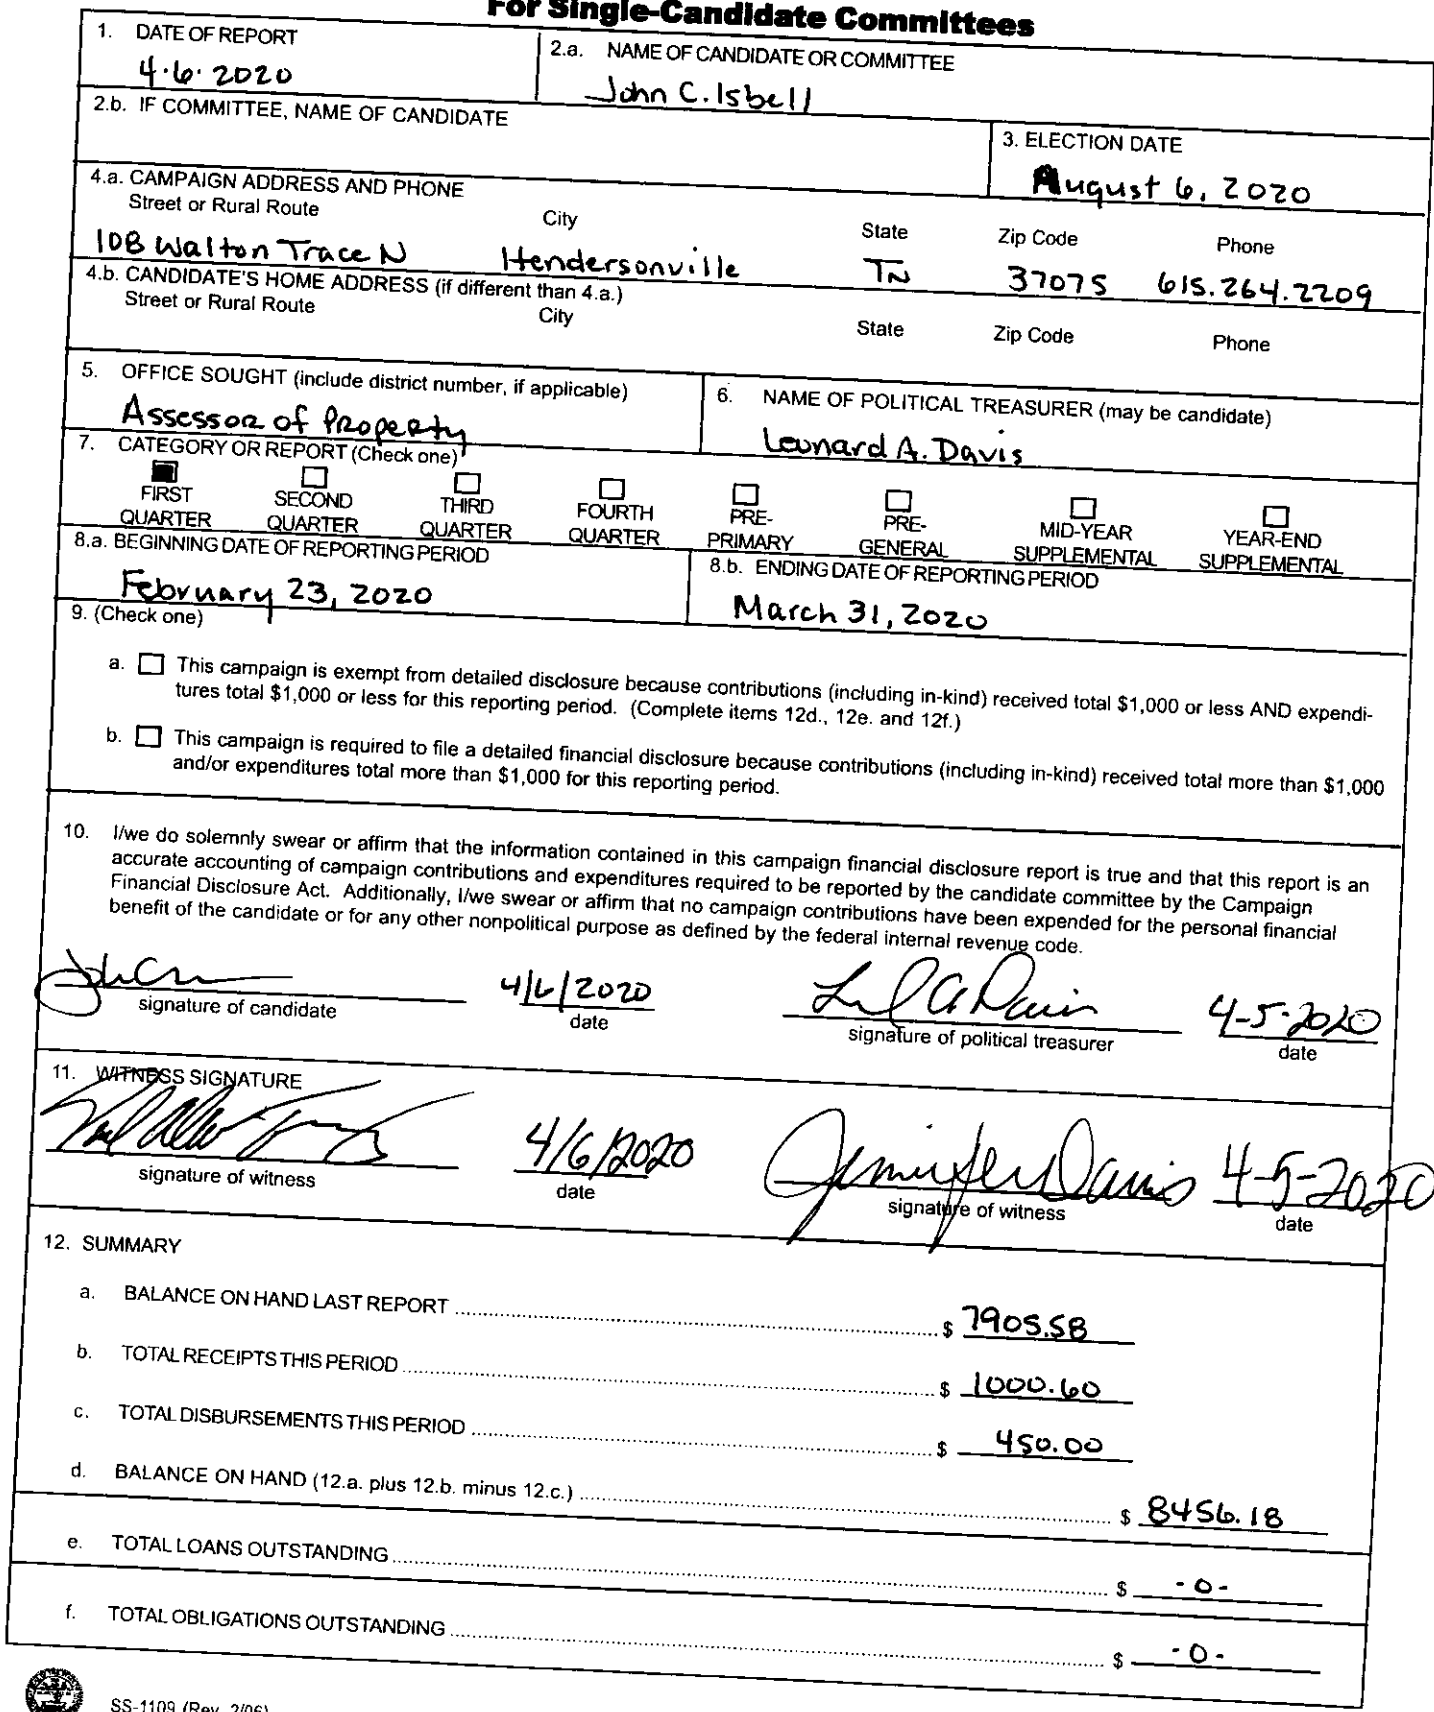 For Single-Candidate Committees
1. DATE OF REPORT
4.6.2020
2.a. NAME OF CANDIDATE OR COMMITTEE
John C. Isbell
2.b. IF COMMITTEE, NAME OF CANDIDATE
3. ELECTION DATE
August 6, 2020
4.a. CAMPAIGN ADDRESS AND PHONE
Street or Rural Route City State Zip Code Phone
108 Walton Trace N Hendersonville TN 37075 615.264.2209
4.b. CANDIDATE'S HOME ADDRESS (if different than 4.a.)
Street or Rural Route City State Zip Code Phone
5. OFFICE SOUGHT (include district number, if applicable)
Assessor of Property
6. NAME OF POLITICAL TREASURER (may be candidate)
Leonard A. Davis
7. CATEGORY OR REPORT (Check one)
FIRST QUARTER
SECOND QUARTER
THIRD QUARTER
FOURTH QUARTER
PRE-PRIMARY
PRE-GENERAL
MID-YEAR SUPPLEMENTAL
YEAR-END SUPPLEMENTAL
8.a. BEGINNING DATE OF REPORTING PERIOD
February 23, 2020
8.b. ENDING DATE OF REPORTING PERIOD
March 31, 2020
9. (Check one)
a. This campaign is exempt from detailed disclosure because contributions (including in-kind) received total $1,000 or less AND expendi-
tures total $1,000 or less for this reporting period. (Complete items 12d., 12e. and 12f.)
b. This campaign is required to file a detailed financial disclosure because contributions (including in-kind) received total more than $1,000
and/or expenditures total more than $1,000 for this reporting period.
10. I/we do solemnly swear or affirm that the information contained in this campaign financial disclosure report is true and that this report is an
accurate accounting of campaign contributions and expenditures required to be reported by the candidate committee by the Campaign
Financial Disclosure Act. Additionally, I/we swear or affirm that no campaign contributions have been expended for the personal financial
benefit of the candidate or for any other nonpolitical purpose as defined by the federal internal revenue code.
4/6/2020
signature of candidate date
A Davis 4-5-2020
signature of political treasurer date
11. WITNESS SIGNATURE
4/6/2020
signature of witness date
Jennifer Davis 4-5-2020
signature of witness date
12. SUMMARY
a. BALANCE ON HAND LAST REPORT $ 7905.58
b. TOTAL RECEIPTS THIS PERIOD $ 1000.60
c. TOTAL DISBURSEMENTS THIS PERIOD $ 450.00
d. BALANCE ON HAND (12.a. plus 12.b. minus 12.c.) $ 8456.18
e. TOTAL LOANS OUTSTANDING $ -0-
f. TOTAL OBLIGATIONS OUTSTANDING $ -0-
SS-1109 (Rev. 2/06)